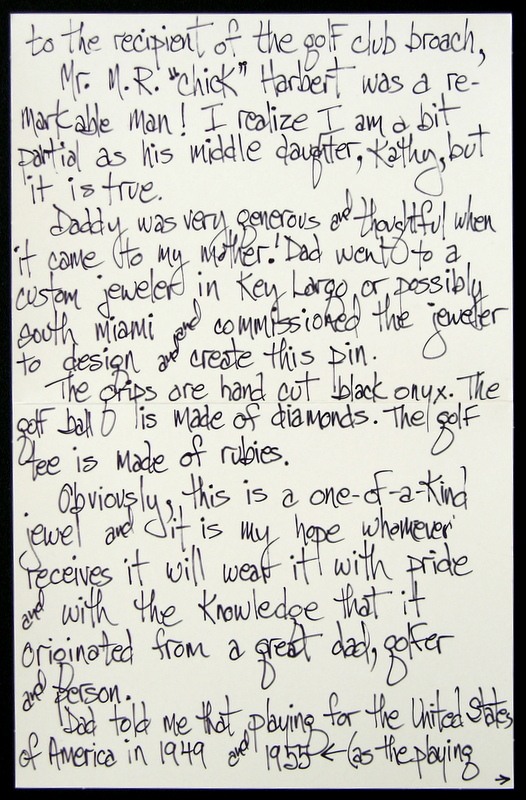 to the recipient of the golf club broach,
Mr. M.R. "Chick" Harbert was a re-
markable man! I realize I am a bit
partial as his middle daughter, Kathy, but
it is true.
Daddy was very generous and thoughtful when
it came to my mother! Dad went to a
custom jeweler in Key Largo or possibly
south miami and commissioned the jeweler
to design and create this pin.
The grips are hand cut black onyx. The
golf ball is made of diamonds. The golf
tee is made of rubies.
Obviously, this is a one-of-a-kind
jewel and it is my hope whomever
receives it will wear it with pride
and with the knowledge that it
originated from a great dad, golfer
and person.
Dad told me that playing for the United States
of America in 1949 and 1955 ← (as the playing
→